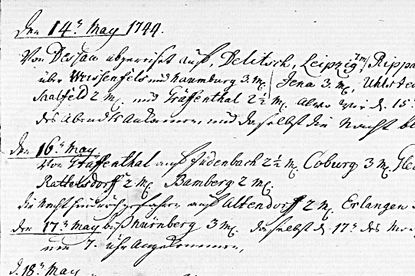 Den 14t. May 1744.
Von Dessau abgereiset auf, Delitsch, Leipzig 7 m, Rippa
über Weissenfels und Naumburg 3 m, Jena 3. m, Uhlste
Saalfeld 2 m, und Gräffenthal 2½ m, den 15
des Abends ankommen, und daselbst die Nacht
den 16t. May
Von Gräffenthal auf Judenbach 2½ m, Coburg 3 m,
Rattelsdorff 2 m, Bamberg 2 m,
die Nacht durch gefahren auf Altendorff 2 m, Erlangen
den 17t. May biß Nürnberg 3 m, daselbst d. 17t. des
um 7. uhr angekommen,
d. 18t. May